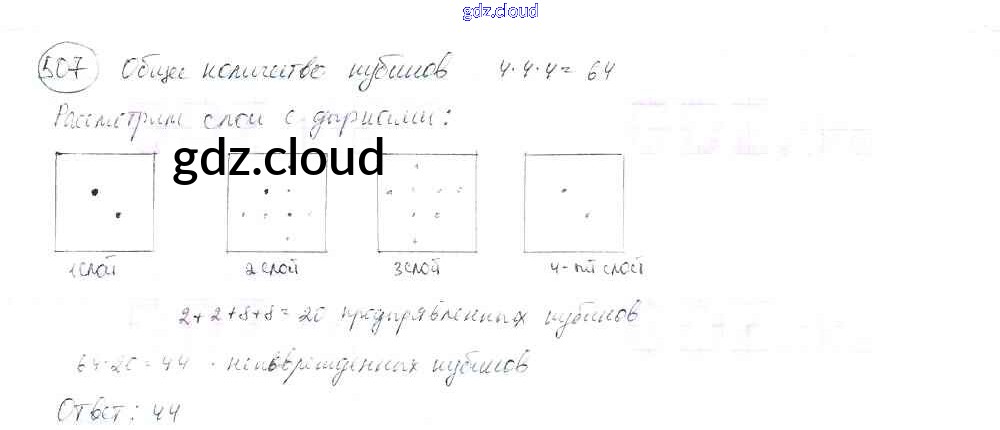 gdz.cloud
507 Общее количество кубиков 4·4·4= 64
Рассмотрим слои с дырками:
gdz.cloud
1 слой 2 слой 3 слой 4-ый слой
2+2+8+8=20 продырявленных кубиков
64-20=44 - неповрежденных кубиков
Ответ: 44